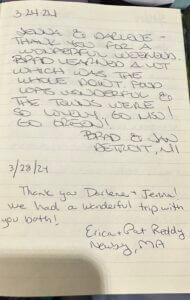 3.24.24
JENNA & DARLENE -
THANK YOU FOR A
WONDERFUL WEEKEND.
BRAD LEARNED A LOT
WHICH WAS THE
WHOLE POINT. FOOD
WAS WONDERFUL &
THE TOWNS WERE
SO LOVELY. GO MSU!
GO GREEN!
BRAD & JAN
DETROIT, MI
3/28/24
Thank you Darlene + Jenna!
we had a wonderful trip with
you both!
Erica + Pat Reddy
Newby, MA